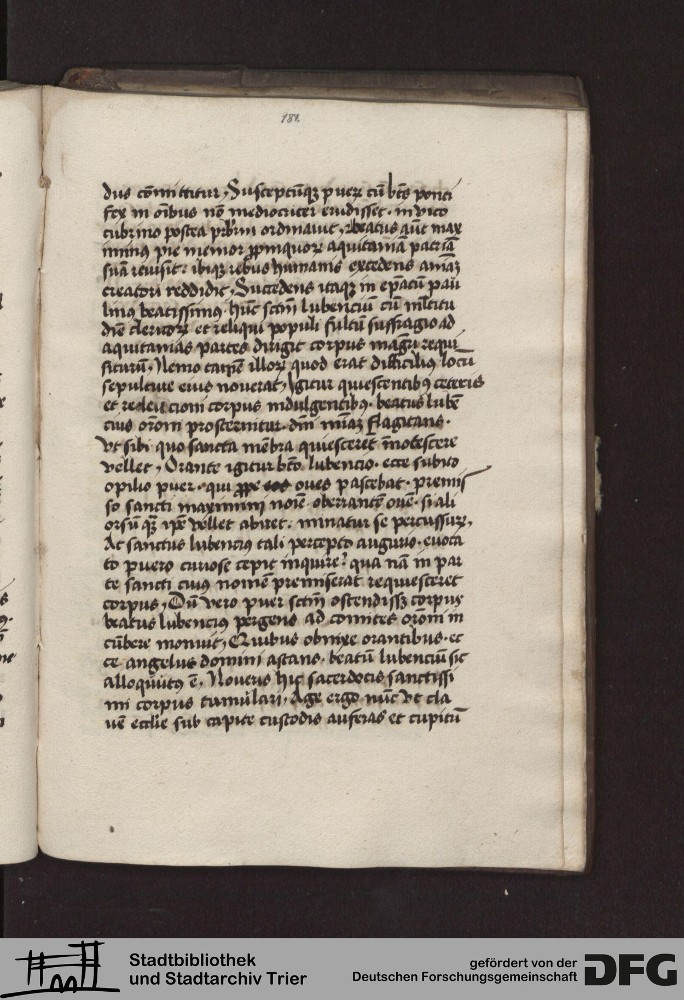 181.
dus cōmittitur, Susceptūqȝ puerū cū btūs ponti
fex in oībus nō mediocriter erudisset. in vico
cubrino postea prbrm̄ ordinauit, Beatus aūt max
iminus pie memor ꝓpinquoꝝ aquitaniā patriā
suā reuisit: ibiqȝ rebus humanis excedens aīaȝ
creatori reddidit, Succedens itaqȝ in ep̄atū pau
linus beatissimus hūc sctm̄ lubenciū cū mltitu
dīe clericoꝝ et reliqui populi fultū suffragio ad
aquitanias partes dirigit corpus magr̄i requi
siturū, Nemo tamē illoꝝ quod erat difficilius locū
sepulture eius nouerat, Igitur quiescentibꝰ ceteris
et corpus indulgentibꝰ. beatus lubē
cius orōm prosternitur. dm̄ nimiū flagitans.
vt sibi quo sancta mēbra quiescerēt īnotescere
vellet, Orante igitur btō lubencio. ecce subito
opilio puer. qui ꝓpe oues pascebat. premis
so sancti maximini noīe oberrantē ouē. si ali
orsū qȝ ipē vellet abiret. minatur se percussurȝ,
At sanctus lubencius tali percepto augurio. euoca
to puero curiose cepit inquirē: qua nā in par
te sancti cuius nomē premiserat requiesceret
corpus, Dū vero puer sctm̄ ostendissȝ corpus
beatus lubencius pergens ad comites orōni in
cūbere monuit, Quibus obnixe orantibus. ec
ce angelus domini astans. beatū lubenciū sic
alloquutꝰ ē, Noueris hic sacerdotis sanctissi
mi corpus tumulari, Age ergo nūc vt cla
uē ecclīe sub capite custodis auferas et cupitū
Stadtbibliothek
und Stadtarchiv Trier
gefördert von der
Deutschen Forschungsgemeinschaft
DFG